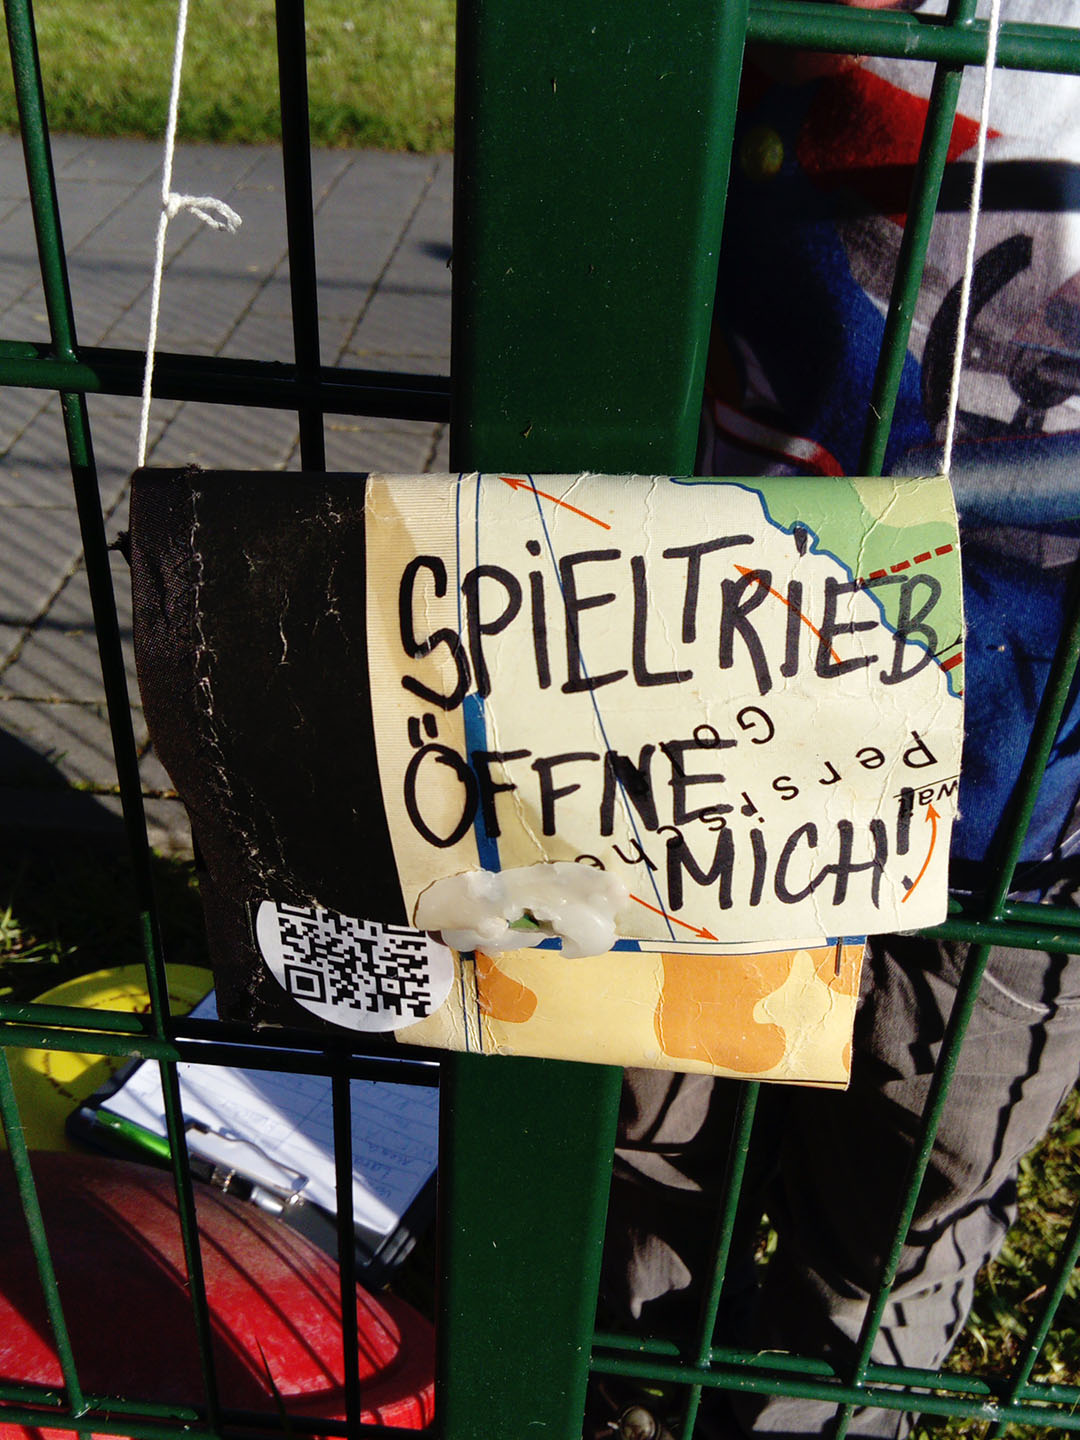 SPiELTRiEB
ÖFFNE
MiCH!
Persische
Go